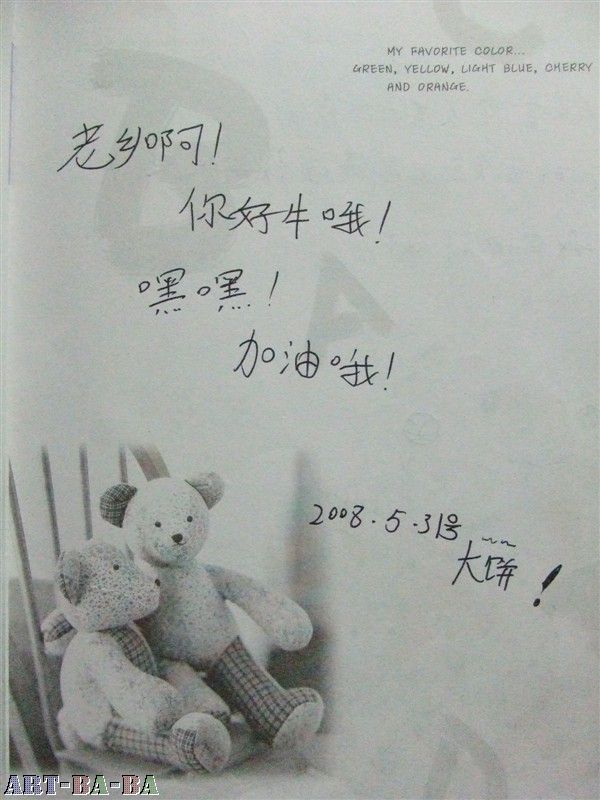 MY FAVORITE COLOR...
GREEN, YELLOW, LIGHT BLUE, CHERRY
AND ORANGE.
老乡啊!
你好牛哦!
嘿嘿!
加油哦!
2008.5.31号
大饼!
ART-BA-BA